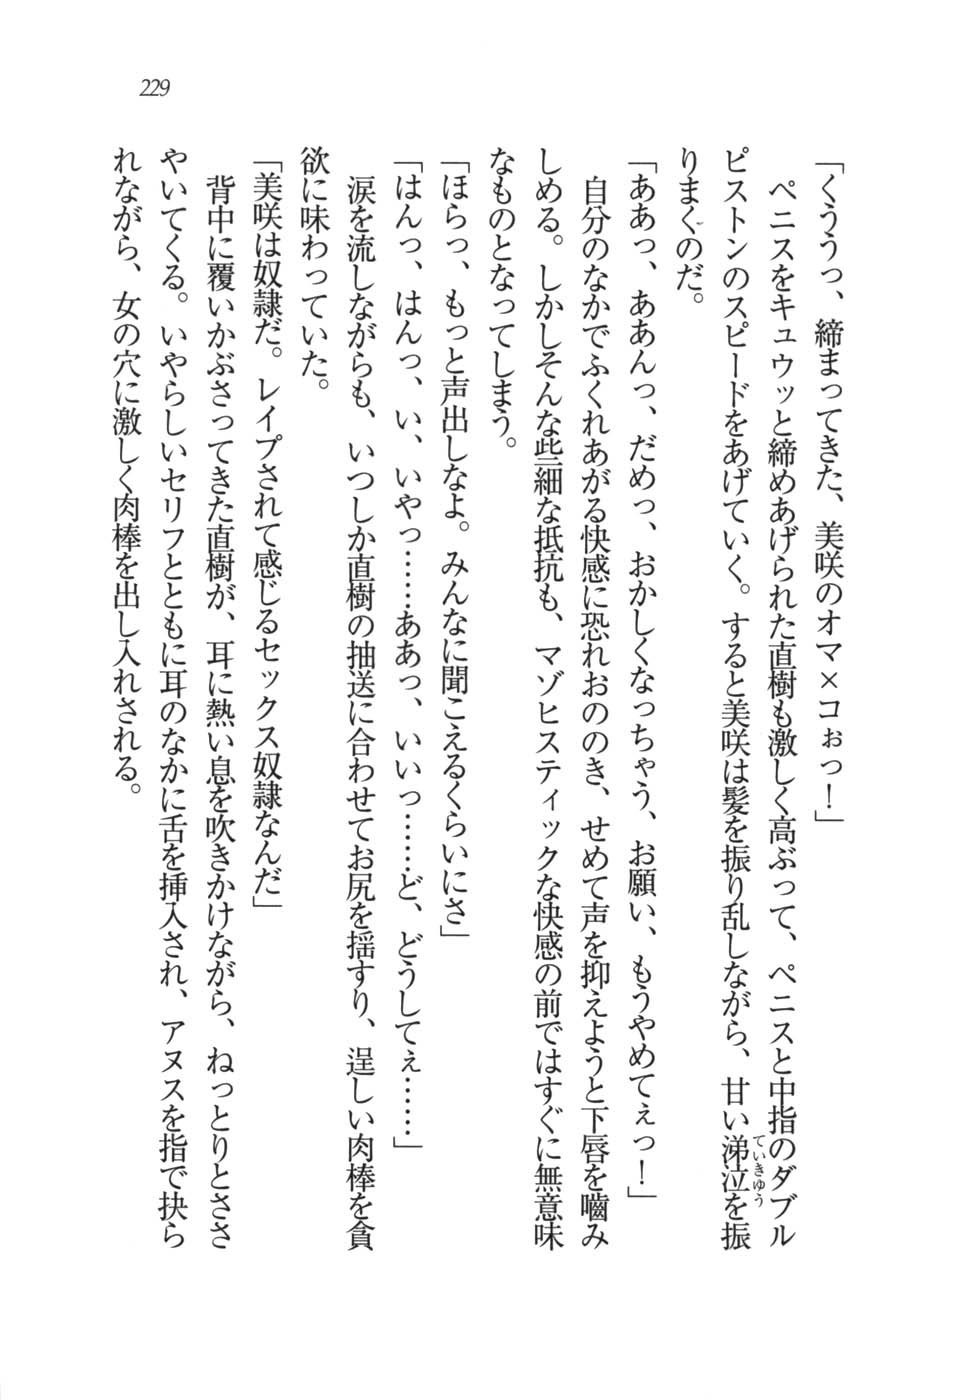 229
「くううっ、締まってきた、美咲のオマ×コぉっ！」
　ペニスをキュウッと締めあげられた直樹も激しく高ぶって、ペニスと中指のダブル
ピストンのスピードをあげていく。すると美咲は髪を振り乱しながら、甘い涕泣を振
ていきゆう
りまくのだ。
「ああっ、ああんっ、だめっ、おかしくなっちゃう、お願い、もうやめてぇっ！」
　自分のなかでふくれあがる快感に恐れおののき、せめて声を抑えようと下唇を嚙み
しめる。しかしそんな些細な抵抗も、マゾヒスティックな快感の前ではすぐに無意味
なものとなってしまう。
「ほらっ、もっと声出しなよ。みんなに聞こえるくらいにさ」
「はんっ、はんっ、い、いやっ……ああっ、いいっ……ど、どうしてぇ……」
　涙を流しながらも、いつしか直樹の抽送に合わせてお尻を揺すり、逞しい肉棒を貪
欲に味わっていた。
「美咲は奴隷だ。レイプされて感じるセックス奴隷なんだ」
　背中に覆いかぶさってきた直樹が、耳に熱い息を吹きかけながら、ねっとりとささ
やいてくる。いやらしいセリフとともに耳のなかに舌を挿入され、アヌスを指で抉ら
れながら、女の穴に激しく肉棒を出し入れされる。